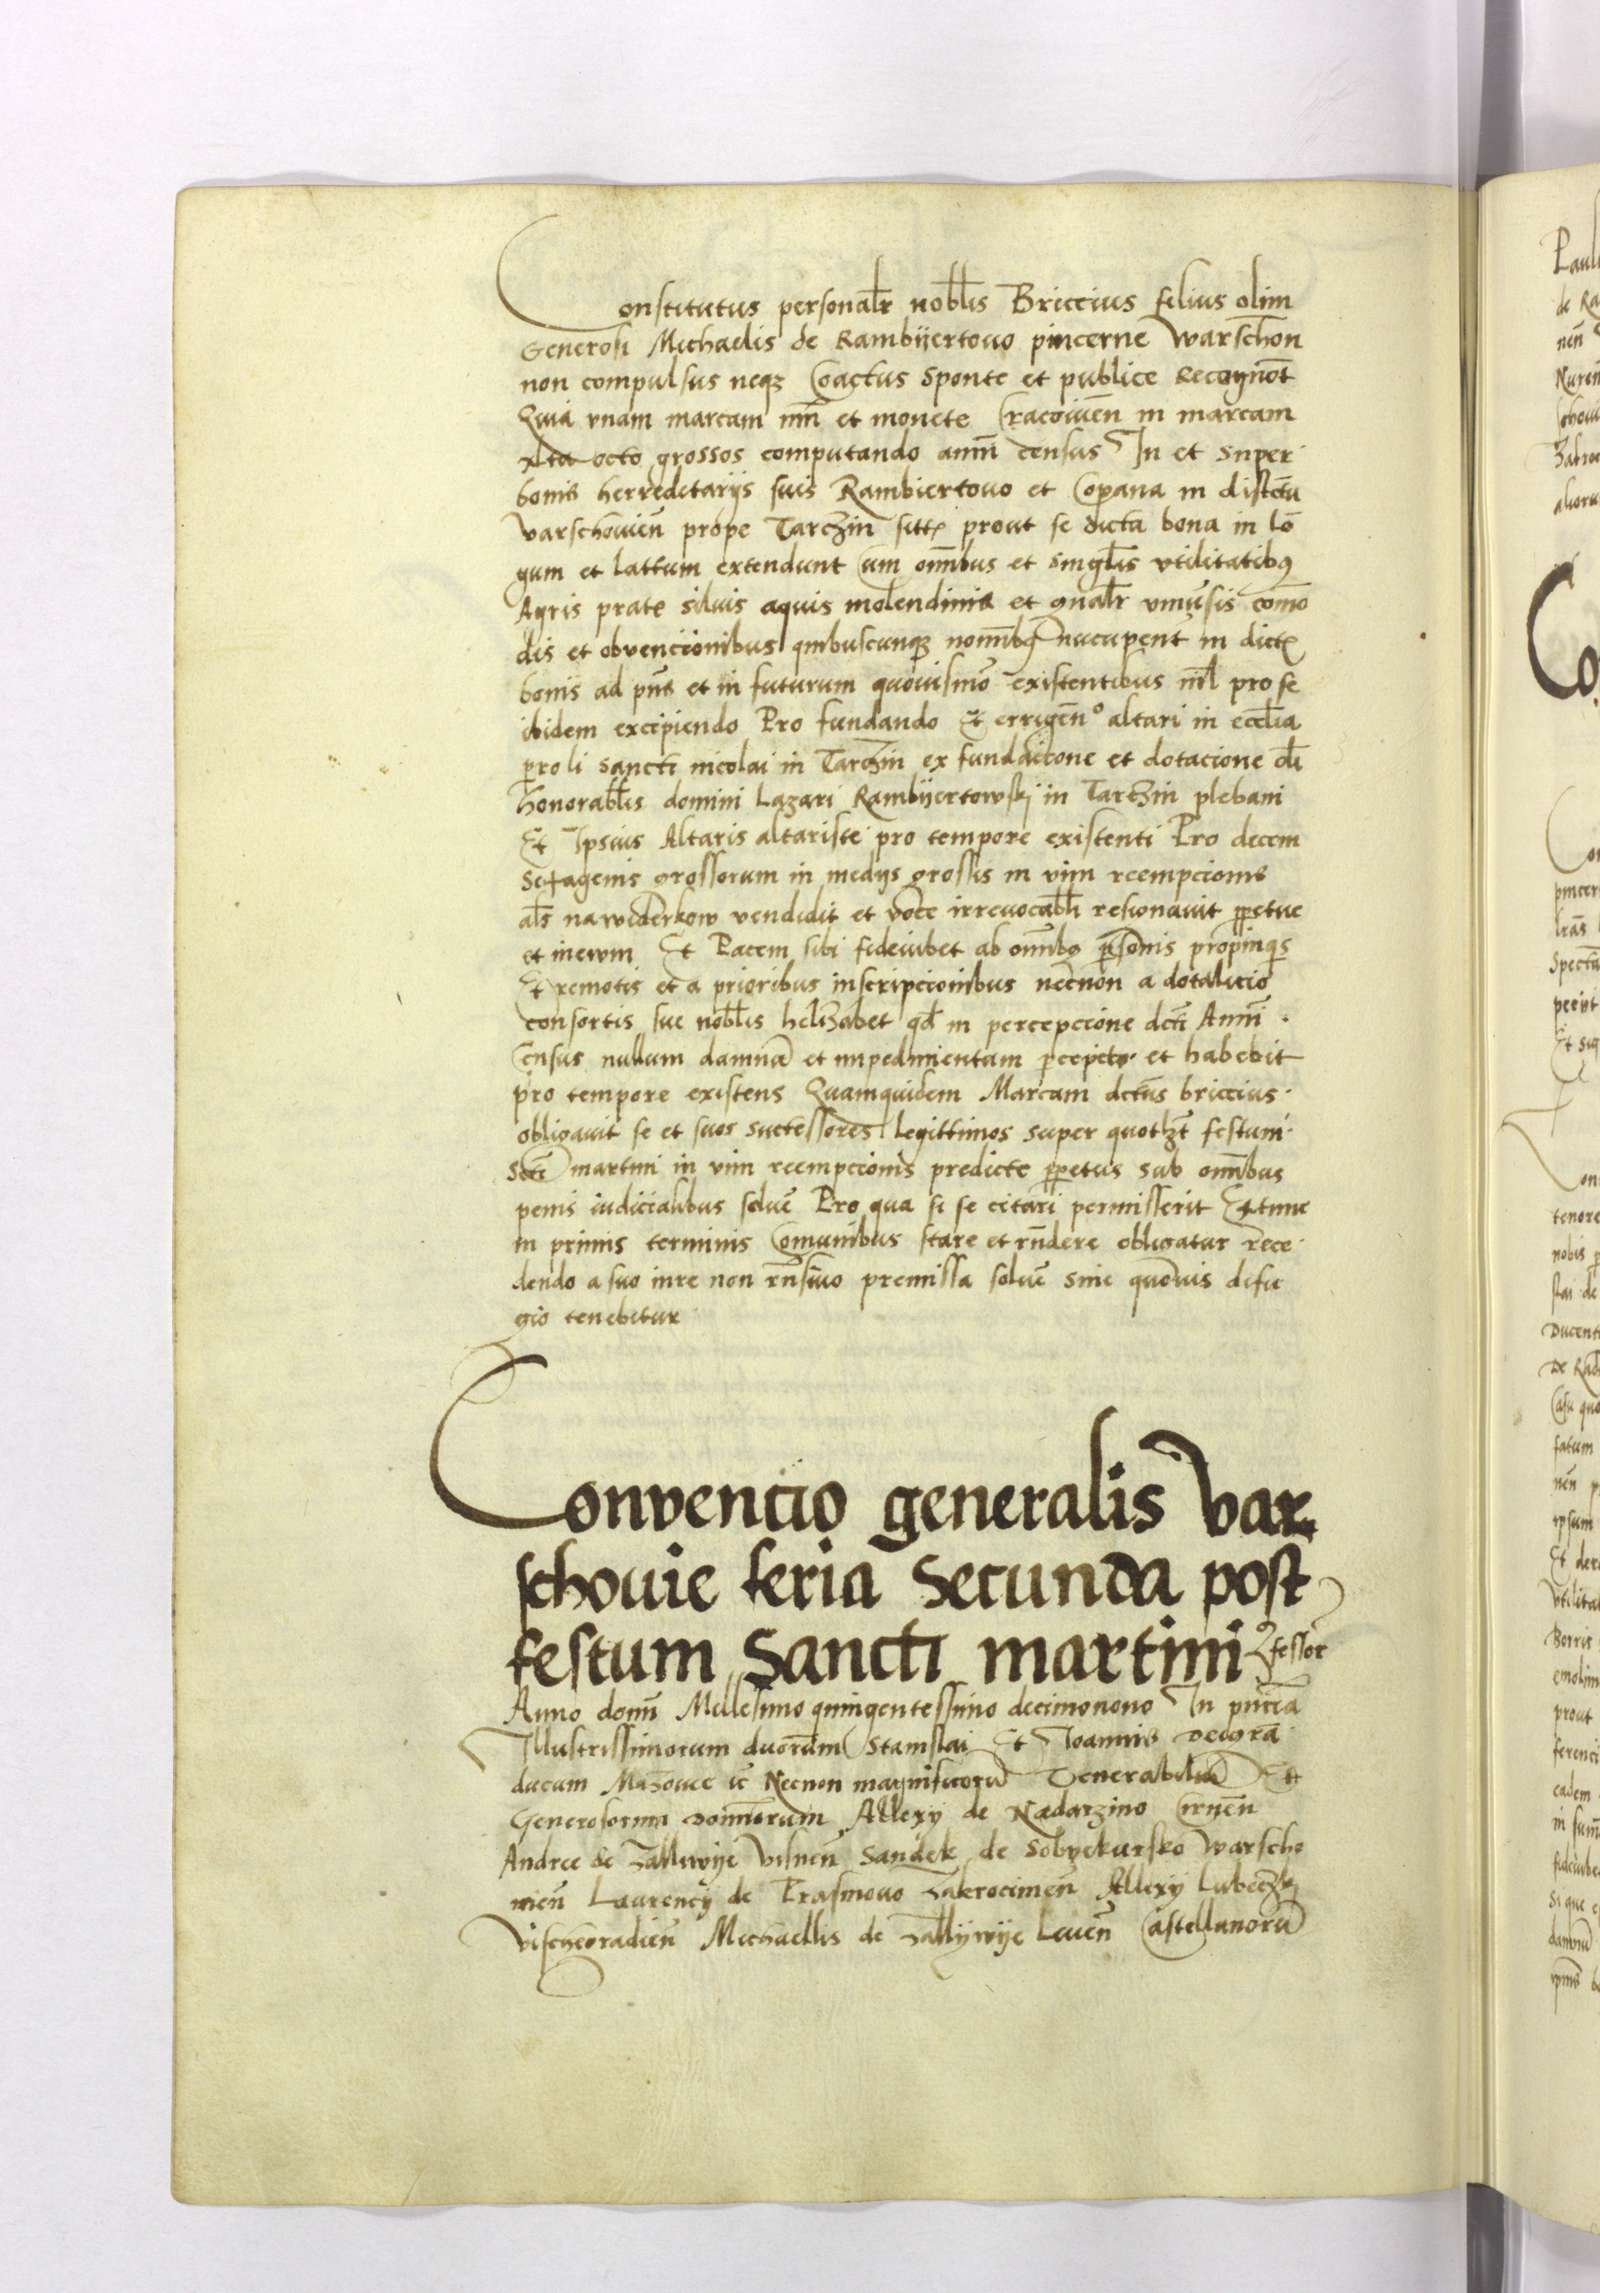 Constitutus personalr nobłis Bricсius filius olim
Generosi Michaelis de Rambijertowo pincerne Warschon
non compulsus neqz Coactus Sponte et publice Recognot
Quia vnam marcam nm̃ et monete Cracouien̄ in marcam
xlta octo grossos computando annī census In et super
bonis herreditarijs suis Rambiertowo et Coprana in distctu
varschouien̄ prope Tarczin sitt prout se dicta bona in lō
gum et lattum extendunt Cum om̄ibus et singlis vtilitatibꝰ
Agris prate siluis aquis molendinis et gnalr vniu̅sis com̄o
dis et obvencionibus quibuscunqz nomi̅bꝰ nucupent in dict
bonis ad pn̄s et in futurum quouismō existentibus nil̄ pro se
ibidem excipiendo Pro fundando Et errigen̄º altari in ecclīa
pro li sancti nicolai in Tarczin ex fundacione et dotacione dl̄i
honorabl̄is domini Lazari Rambijertowskj in Tarczin plebani
Et Ipsius Altaris altariste pro tempore existenti Pro decem
Sexagenis grossorum in medijs grossis in vim reempcionis
al̄s nawiderkow vendidit et voce irreuocabl̄i resignauit ꝑpetue
et inewm Et Pacem sibi fideiubet ab om̄ibꝰ ꝑsonis propinqis
Et remotis et a prioribus inscripcionibus necnon a dotalicio
consortis sue nobl̄is helizabet qd̄ in percepcione dcti Annī
Census nullum damnu̅ et impedimentum et habebit
pro tempore existens Quamquidem Marcam dctus briccius
obligauit se et suos successores legittimos super quotlzt festum
Scti martini in vim reempcionis predicte ꝑpetuis sub om̄ibus
penis iudicialibus soluē Pro qua si se citari permisserit Extunc
in primis terminis Comunibus stare et rn̄dere obligatur rece
dendo a suo iure non rn̄siuo premissa soluē sine quouis difu
gio tenebitur
Convencio generalis Var
schouie feria Secunda post
festum Sancti martini ꝯfessor
Anno domī Millesimo quingentessimo decimonono In pn̄cia
Illustrissimorum duorum Stanislai Et Joannis Dei gra
ducum Mazouie ic Necnon magnificoru̅ Venerabiliu̅ Et
Generosorum Domīorum Allexij de Nadarzino Cirnen̄
Andree de Zalliwije Visnen̄ Sandek de Sobyekursko Warscho
uien̄ Laurencij de Prasmowo Zakrocimen̄ Allexij Lubeczkj
Vischegradien̄ Michaellis de Zallijwije Liuen̄ Castellanoru̅